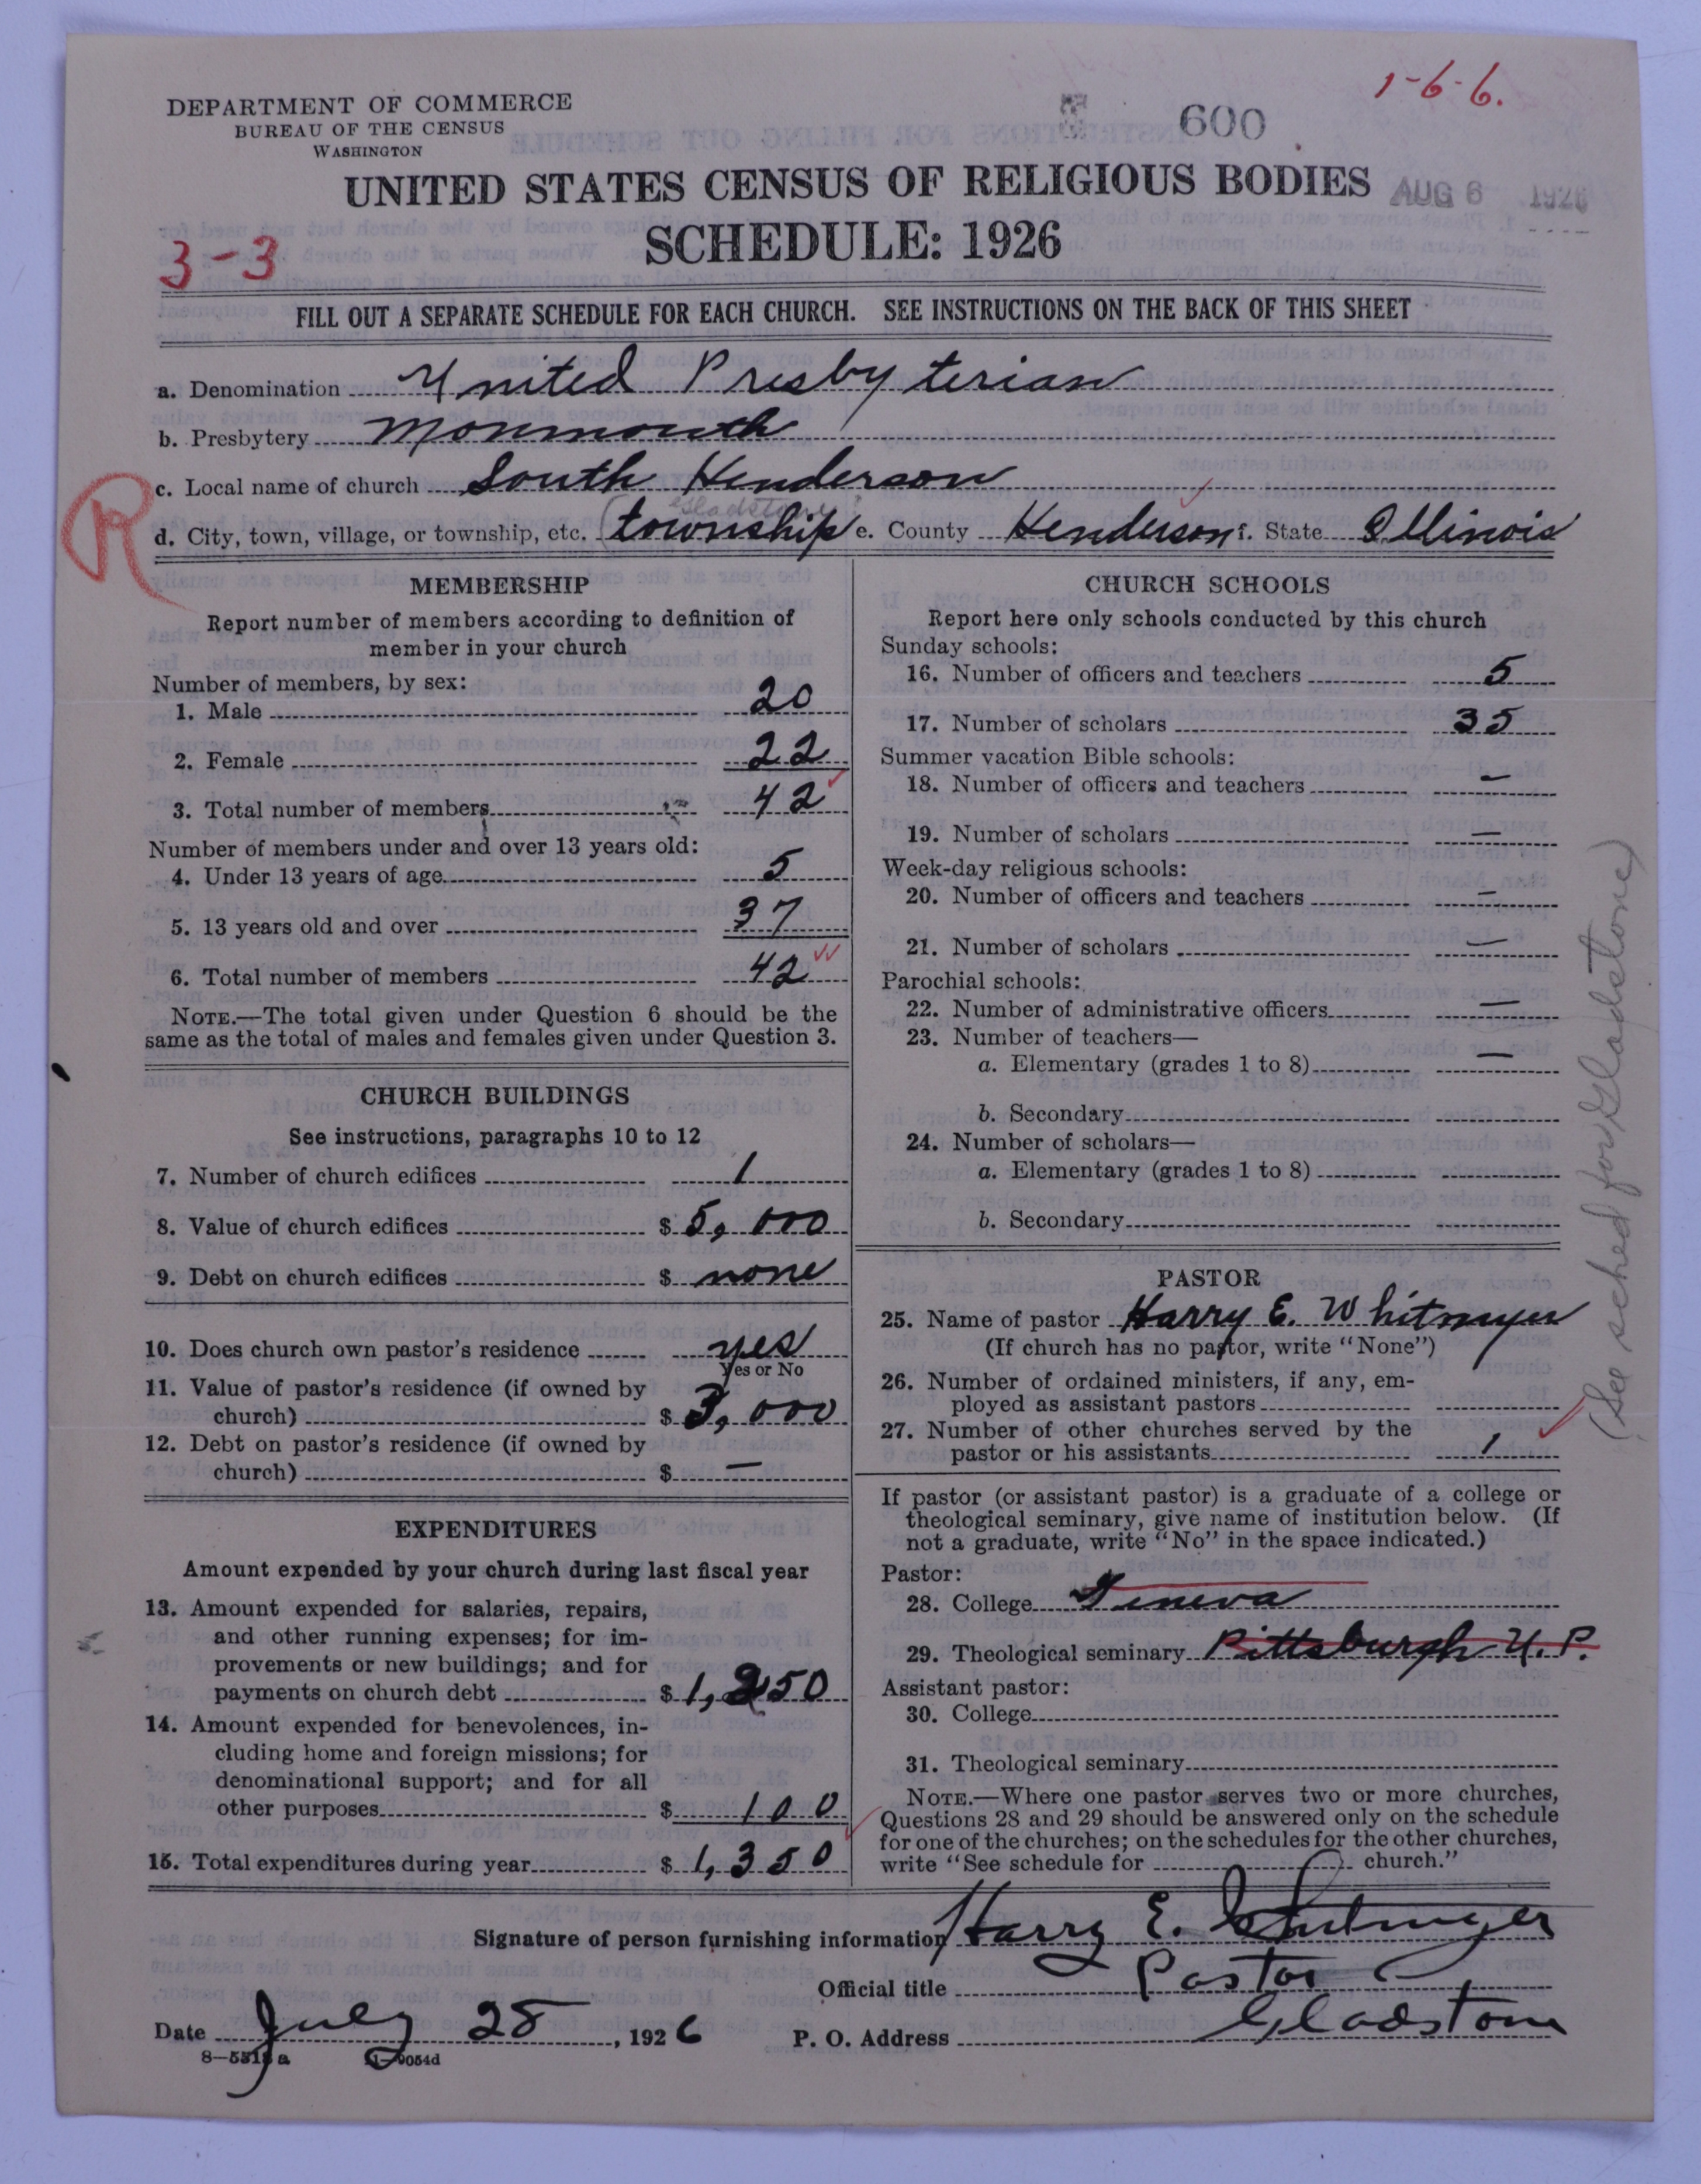 1-6-6.
DEPARTMENT OF COMMERCE
BUREAU OF THE CENSUS
WASHINGTON
600
UNITED STATES CENSUS OF RELIGIOUS BODIES
AUG 6 1926
SCHEDULE: 1926
3-3
FILL OUT A SEPARATE SCHEDULE FOR EACH CHURCH. SEE INSTRUCTIONS ON THE BACK OF THIS SHEET
a. Denomination United Presbyterian
b. Presbytery Monmouth
c. Local name of church South Henderson
R
(Gladstone)
d. City, town, village, or township, etc. township e. County Henderson f. State Illinois
MEMBERSHIP
Report number of members according to definition of
member in your church
Number of members, by sex:
1. Male 20
2. Female 22
3. Total number of members 42
Number of members under and over 13 years old:
4. Under 13 years of age 5
5. 13 years old and over 37
6. Total number of members 42
NOTE.—The total given under Question 6 should be the
same as the total of males and females given under Question 3.
CHURCH BUILDINGS
See instructions, paragraphs 10 to 12
7. Number of church edifices 1
8. Value of church edifices $ 5,000
9. Debt on church edifices $ none
10. Does church own pastor's residence yes
Yes or No
11. Value of pastor's residence (if owned by
church) $ 3,000
12. Debt on pastor's residence (if owned by
church) $ —
EXPENDITURES
Amount expended by your church during last fiscal year
13. Amount expended for salaries, repairs,
and other running expenses; for im-
provements or new buildings; and for
payments on church debt $ 1,250
14. Amount expended for benevolences, in-
cluding home and foreign missions; for
denominational support; and for all
other purposes $ 100
15. Total expenditures during year $ 1,350
CHURCH SCHOOLS
Report here only schools conducted by this church
Sunday schools:
16. Number of officers and teachers 5
17. Number of scholars 35
Summer vacation Bible schools:
18. Number of officers and teachers —
19. Number of scholars —
Week-day religious schools:
20. Number of officers and teachers —
21. Number of scholars —
Parochial schools:
22. Number of administrative officers —
23. Number of teachers—
a. Elementary (grades 1 to 8) —
b. Secondary
24. Number of scholars—
a. Elementary (grades 1 to 8)
b. Secondary
PASTOR
25. Name of pastor Harry E. Whitmyer
(If church has no pastor, write "None")
26. Number of ordained ministers, if any, em-
ployed as assistant pastors
27. Number of other churches served by the
pastor or his assistants 1
If pastor (or assistant pastor) is a graduate of a college or
theological seminary, give name of institution below. (If
not a graduate, write "No" in the space indicated.)
Pastor:
28. College Geneva
29. Theological seminary Pittsburgh U. P.
Assistant pastor:
30. College
31. Theological seminary
NOTE.—Where one pastor serves two or more churches,
Questions 28 and 29 should be answered only on the schedule
for one of the churches; on the schedules for the other churches,
write "See schedule for church."
(See sched for Gladstone)
Signature of person furnishing information Harry E. Whitmyer
Official title Pastor
Date July 28, 1926 P. O. Address Gladstone
8—5518a 11—9054d